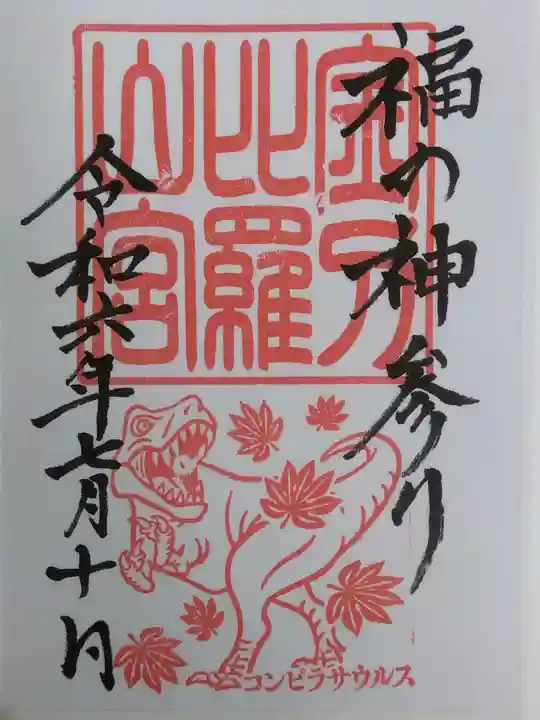 福の神参り
金刀
比羅
山宮
令和六年七月十日
コンピラサウルス